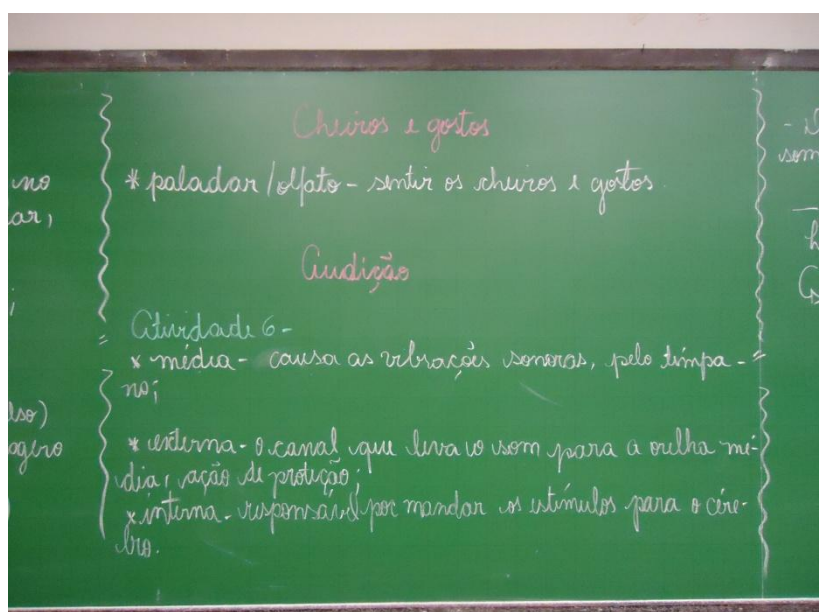 no
ar,
;
lso)
Cheiros e gostos
* paladar/olfato - sentir os cheiros e gostos.
Audição
Atividade 6 -
* média - causa as vibrações sonoras, pelo tímpa-
no;
* externa - o canal que leva o som para a orelha mé-
dia, ação de proteção;
* interna - responsável por mandar os estímulos para o cére-
bro.
som